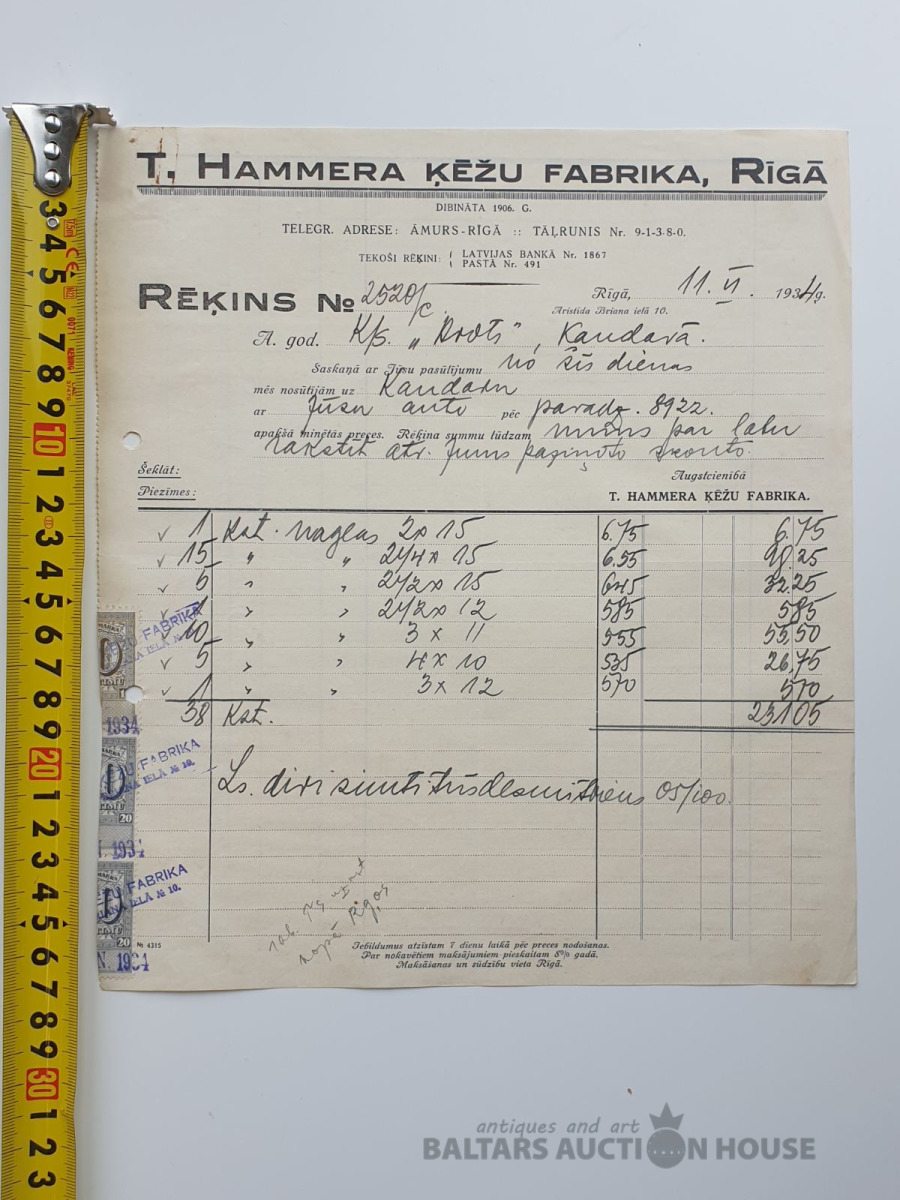 T. HAMMERA ĶĒŽU FABRIKA, RĪGĀ
DIBINĀTA 1906. G.
TELEGR. ADRESE: ĀMURS-RĪGĀ :: TĀĻRUNIS Nr. 9-1-3-8-0.
TEKOŠI RĒĶINI: LATVIJAS BANKĀ Nr. 1867
PASTĀ Nr. 491
RĒĶINS № 2520/c
Rīgā, 11. VI. 1934 g.
Aristida Briana ielā 10.
A. god. K/s. , Kandavā.
Saskaņā ar Jūsu pasūtījumu no šīs dienas
mēs nosūtījām uz Kandavu
ar Jūsu auto pēc pavadz. 8922.
apakšā minētās preces. Rēķina summu tūdzam mums par labu
rakstīt atv. Jums skonto.
Šeklāt:
Piezīmes:
Augstcienībā
T. HAMMERA ĶĒŽU FABRIKA.
1 Kst. naglas 2 x 15 6.75 6.75
15 " " 2 1/4 x 15 6.55 98.25
5 " " 2 1/2 x 15 645 32.25
1 " " 2 1/2 x 12 585 585
10 " " 3 x 11 555 55,50
5 " " 4 x 10 535 26,75
1 " " 3 x 12 570 570
38 Kst. 231 05
Ls. divi simti trīsdesmitviens 05/100.
FABRIKA
IELĀ № 10.
1934
FABRIKA
IELĀ № 10.
20
1934
FABRIKA
IELĀ № 10.
20
N. 1934
№ 4315
Iebildumus atzīstam 7 dienu laikā pēc preces nodošanas.
Par nokavētiem maksājumiem pieskaitam 8% gadā.
Maksāšanas un sūdzību vieta Rīgā.
3 4 5 6 7 8 9 10 1 2 3 4 5 6 7 8 9 20 1 2 3 4 5 6 7 8 9 30 1 2 3
antiques and art
BALTARS AUCTION HOUSE